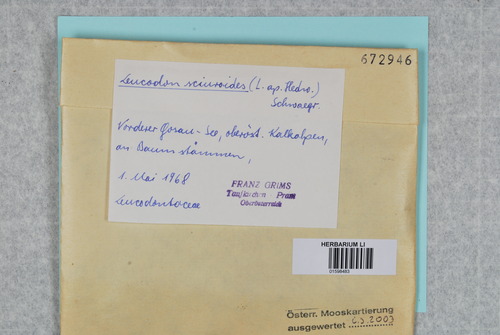 672946
Leucodon sciuroides (L. ap. Hedw.)
Schwaegr.
Vorderer Gosau-See, oberöst. Kalkalpen,
an Baumstämmen,
1. Mai 1968
Leucodontaceae
FRANZ GRIMS
Taufkirchen Pram
Oberösterreich
HERBARIUM LI
Österr. Mooskartierung
ausgewertet 2003